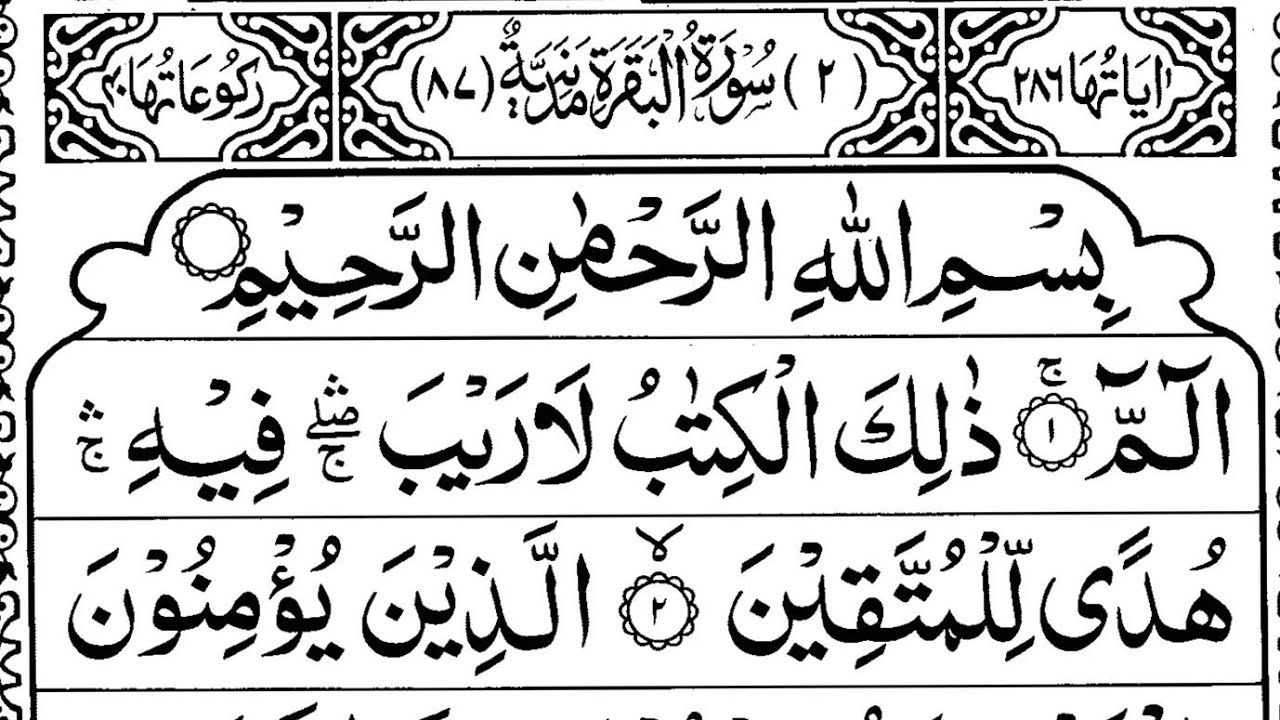 اٰيَاتُهَا ٢٨٦ (٢) سُوْرَةُ الْبَقَرَةِ مَدَنِيَّةٌ (٨٧) رُكُوْعَاتُهَا ٤٠
بِسْمِ اللّٰهِ الرَّحْمٰنِ الرَّحِيْمِ
الٓـمّٓ ۚ ١ ذٰلِكَ الْكِتٰبُ لَا رَيْبَ ۛۖۚ فِيْهِ ۛۚ
هُدًى لِّلْمُتَّقِيْنَ ۙ ٢ الَّذِيْنَ يُؤْمِنُوْنَ